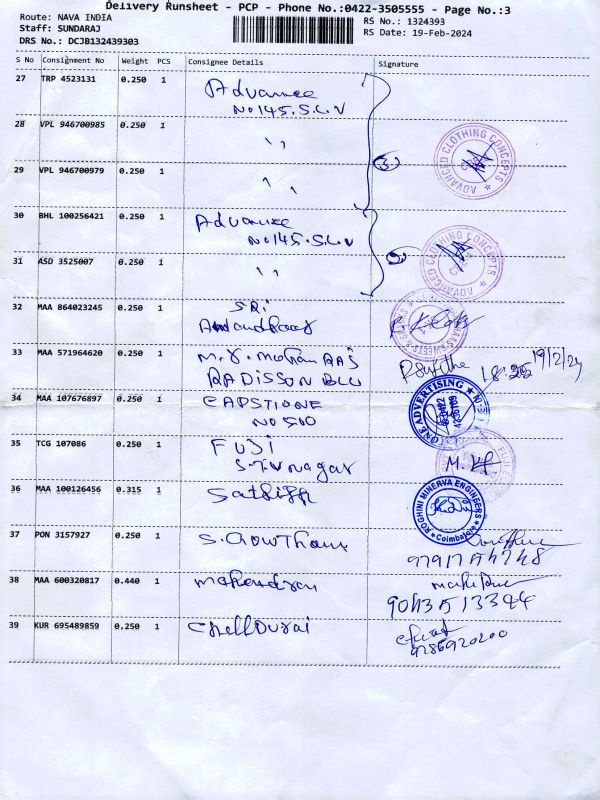 Delivery Runsheet - PCP - Phone No.:0422-3505555 - Page No.:3
Route: NAVA INDIA
Staff: SUNDARAJ
DRS No.: DCJB132439303
RS No.: 1324393
RS Date: 19-Feb-2024
S No Consignment No Weight PCS Consignee Details Signature
27 TRP 4523131 0.250 1 Advance
No 145. S.L.V
28 VPL 946700985 0.250 1 ,,
29 VPL 946700979 0.250 1 ,,
(3)
ADVANCED CLOTHING CONCEPTS
30 BHL 100256421 0.250 1 Advance
No 145. S.L.V
31 ASD 3525007 0.250 1 ,,
ADVANCED CLOTHING CONCEPTS
32 MAA 864023245 0.250 1 SRi
33 MAA 571964620 0.250 1 M.R. Mohan RAJ
RADISSON BLU
18:25 19/2/24
34 MAA 107676897 0.250 1 CAPSTIONE
NO 500
ONE ADVERTISING
35 TCG 107086 0.250 1 FUJI
S.T.V nagar
36 MAA 100126456 0.315 1 Sathish
ROGHINI MINERVA ENGINEERS
Coimbatore
37 PON 3157927 0.250 1 S. Gowtham
38 MAA 600320817 0.440 1 Mahendran
9043513344
39 KUR 695489859 0.250 1 ChellDurai
9786920200